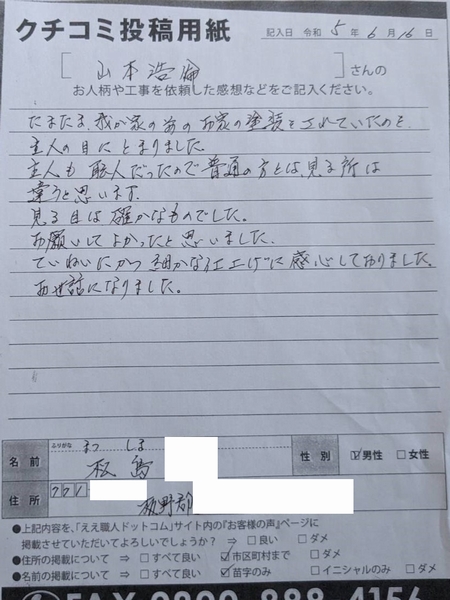 クチコミ投稿用紙
記入日 令和 5 年 6 月 16 日
[山本浩倫]さんの
お人柄や工事を依頼した感想などをご記入ください。
たまたま、我が家の前のお家の塗装をされていたのを、
主人の目にとまりました。
主人も職人だったので普通の方とは、見る所は
違うと思います。
見る目は確かなものでした。
お願いしてよかったと思いました。
ていねいにかつ細かな仕上げに感心しておりました。
お世話になりました。
ふりがな まつ しま
名前 松島 性別 ☑男性 □女性
住所 771 板野郡
●上記内容を、「ええ職人ドットコム」サイト内の『お客様の声』ページに
掲載させていただいてよろしいでしょうか? ⇒ □良い □ダメ
●住所の掲載について ⇒ □すべて良い ☑市区町村まで □ダメ
●名前の掲載について ⇒ □すべて良い ☑苗字のみ □イニシャルのみ □ダメ
FAX 0800-888-4156